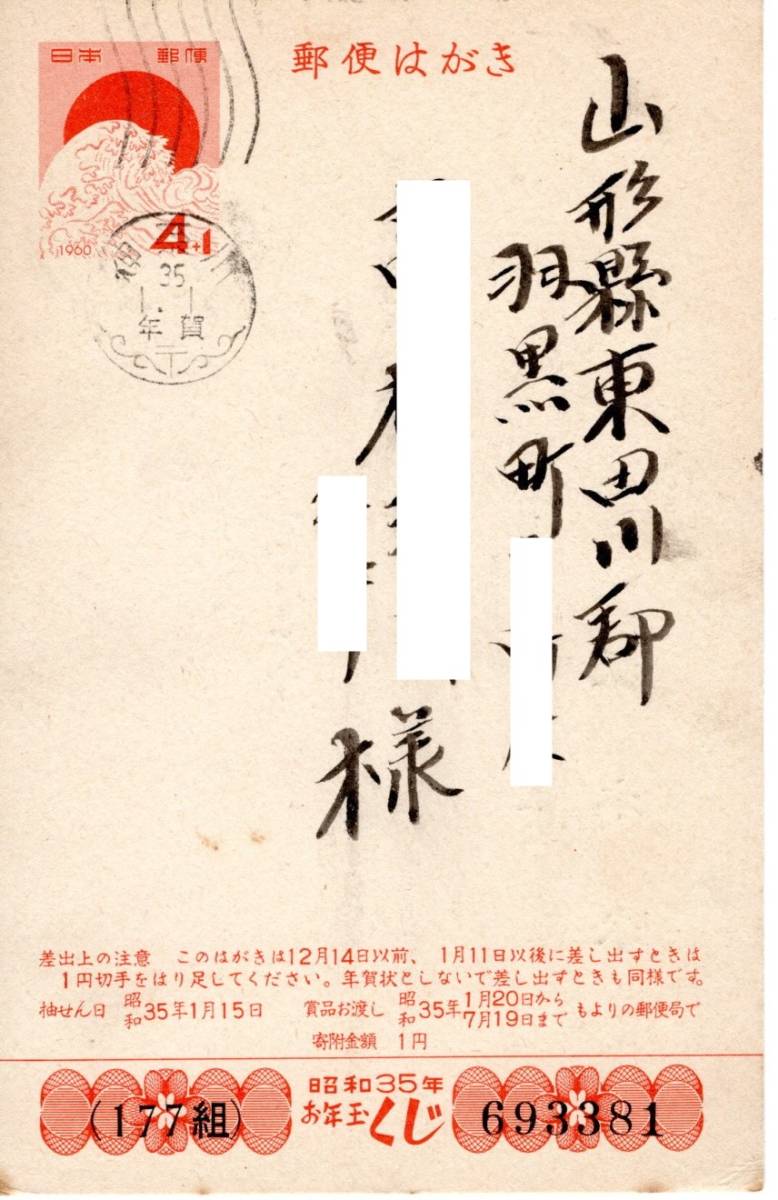 日本 郵便
郵便はがき
1960
4+1
35
1.1
年賀
山形縣東田川郡
羽黒町
様
様
差出上の注意 このはがきは12月14日以前、1月11日以後に差し出すときは
1円切手をはり足してください。年賀状としないで差し出すときも同様です。
抽せん日 昭和35年1月15日 賞品お渡し 昭和35年1月20日から7月19日まで もよりの郵便局で
寄附金額 1円
(177組)
昭和35年
お年玉くじ
693381